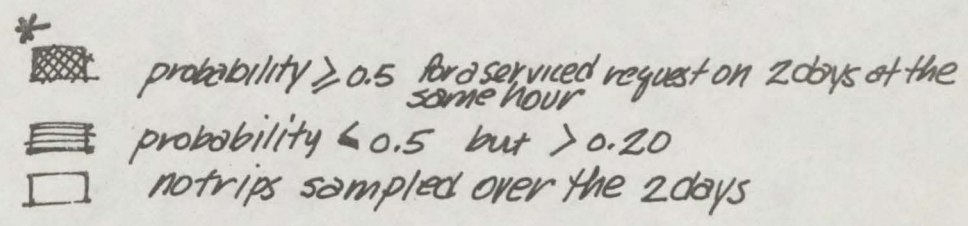 *
probability ≥ 0.5 for a serviced request on 2 days at the
same hour
probability < 0.5 but > 0.20
no trips sampled over the 2 days